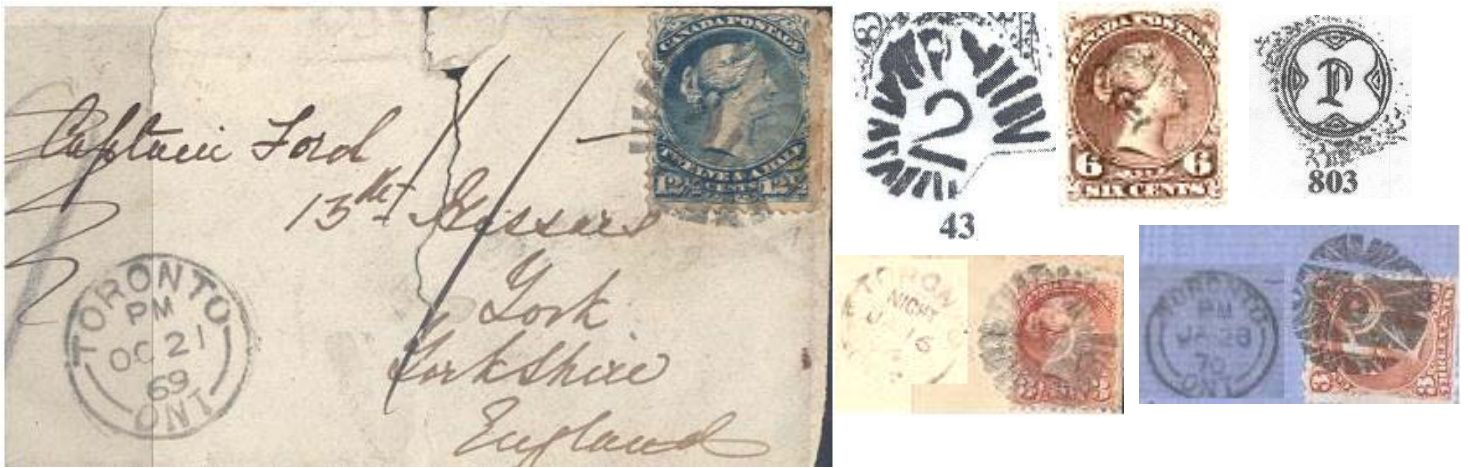 CANADA POSTAGE
TWELVE & A HALF
12½ CENTS 12½
Captain Ford
13th Hussars
York
Yorkshire
England
TORONTO
PM
OC 21
69
ONT
2
43
CANADA POSTAGE
6 6
SIX CENTS
803
TORON
NIGHT
16
3 3
TORONTO
PM
JA 28
70
ONT
3